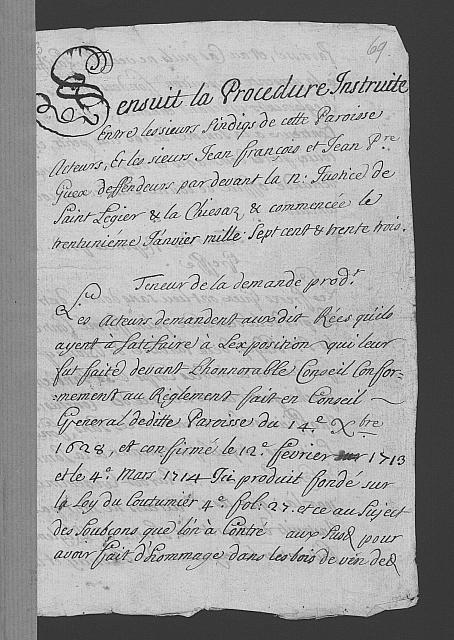 69.
Sensuit la Procedure Instruite
Entre les sieurs Sindigs de cette Paroisse
Acteurs, Et les sieurs Jean françois et Jean P.re
Guex deffendeurs par devant la n: Justice de
Saint Legier & la Chiesaz & commencée le
trentuniéme Janvier mille Sept cent & trente trois.
Teneur de la demande prod.t
Les Acteurs demandent auxdit Rées quils
ayent à satisfaire à Lexposition qui leur
fut faite devant Lhonnorable Conseil Confor-
=mement au Réglement fait en Conseil
General deditte Paroisse du 14.e Xbre
1628, et confirmé le 12.e février 1713
et le 4.e Mars 1714 Ici produit fondé sur
la Loy du Coutumier 4.e fol: 27. et ce au Suject
des Soubçons que lon à Contré aux pour
avoir fait d'hommage dans les bois de vin